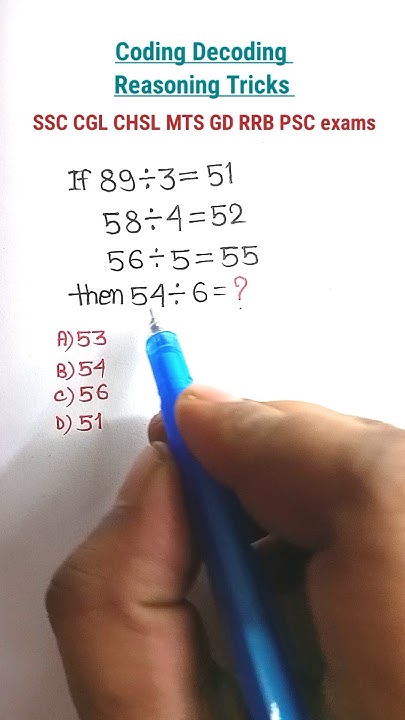 Coding Decoding
Reasoning Tricks
SSC CGL CHSL MTS GD RRB PSC exams
If 89÷3=51
58÷4=52
56÷5=55
then 54÷6=?
A) 53
B) 54
C) 56
D) 51